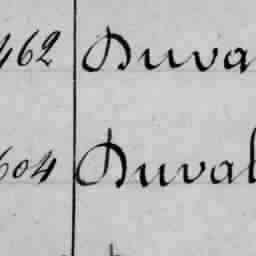 462 Duva
604 Duval